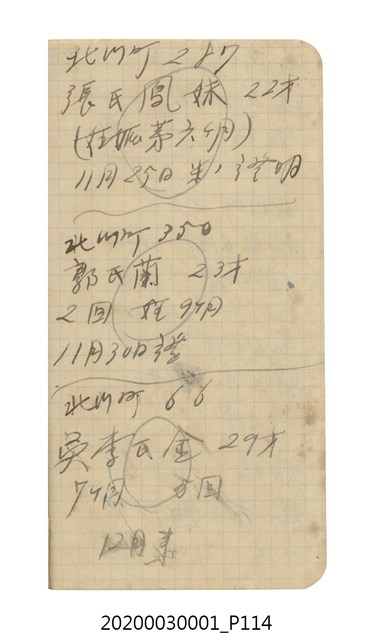 北川町 287
張氏鳳妹 22才
(妊娠第六ケ月)
11月25日 証明
北川町 350
郭氏蘭 23才
2回 妊 9ケ月
11月30日証
北川町 66
吳李氏金 29才
7ケ月 5回
12月末
20200030001_P114